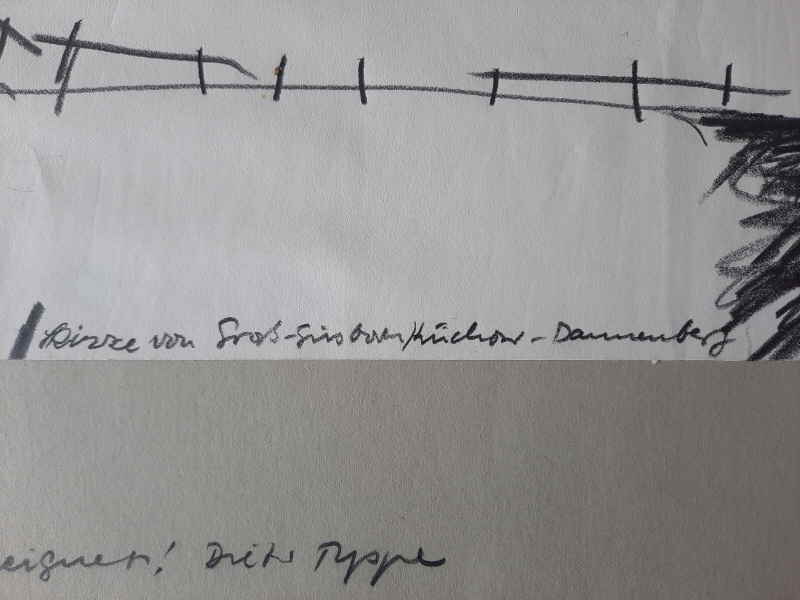 Skizze von Groß-Gusborn/Lüchow-Dannenberg
eignet! Dieter Tyspe